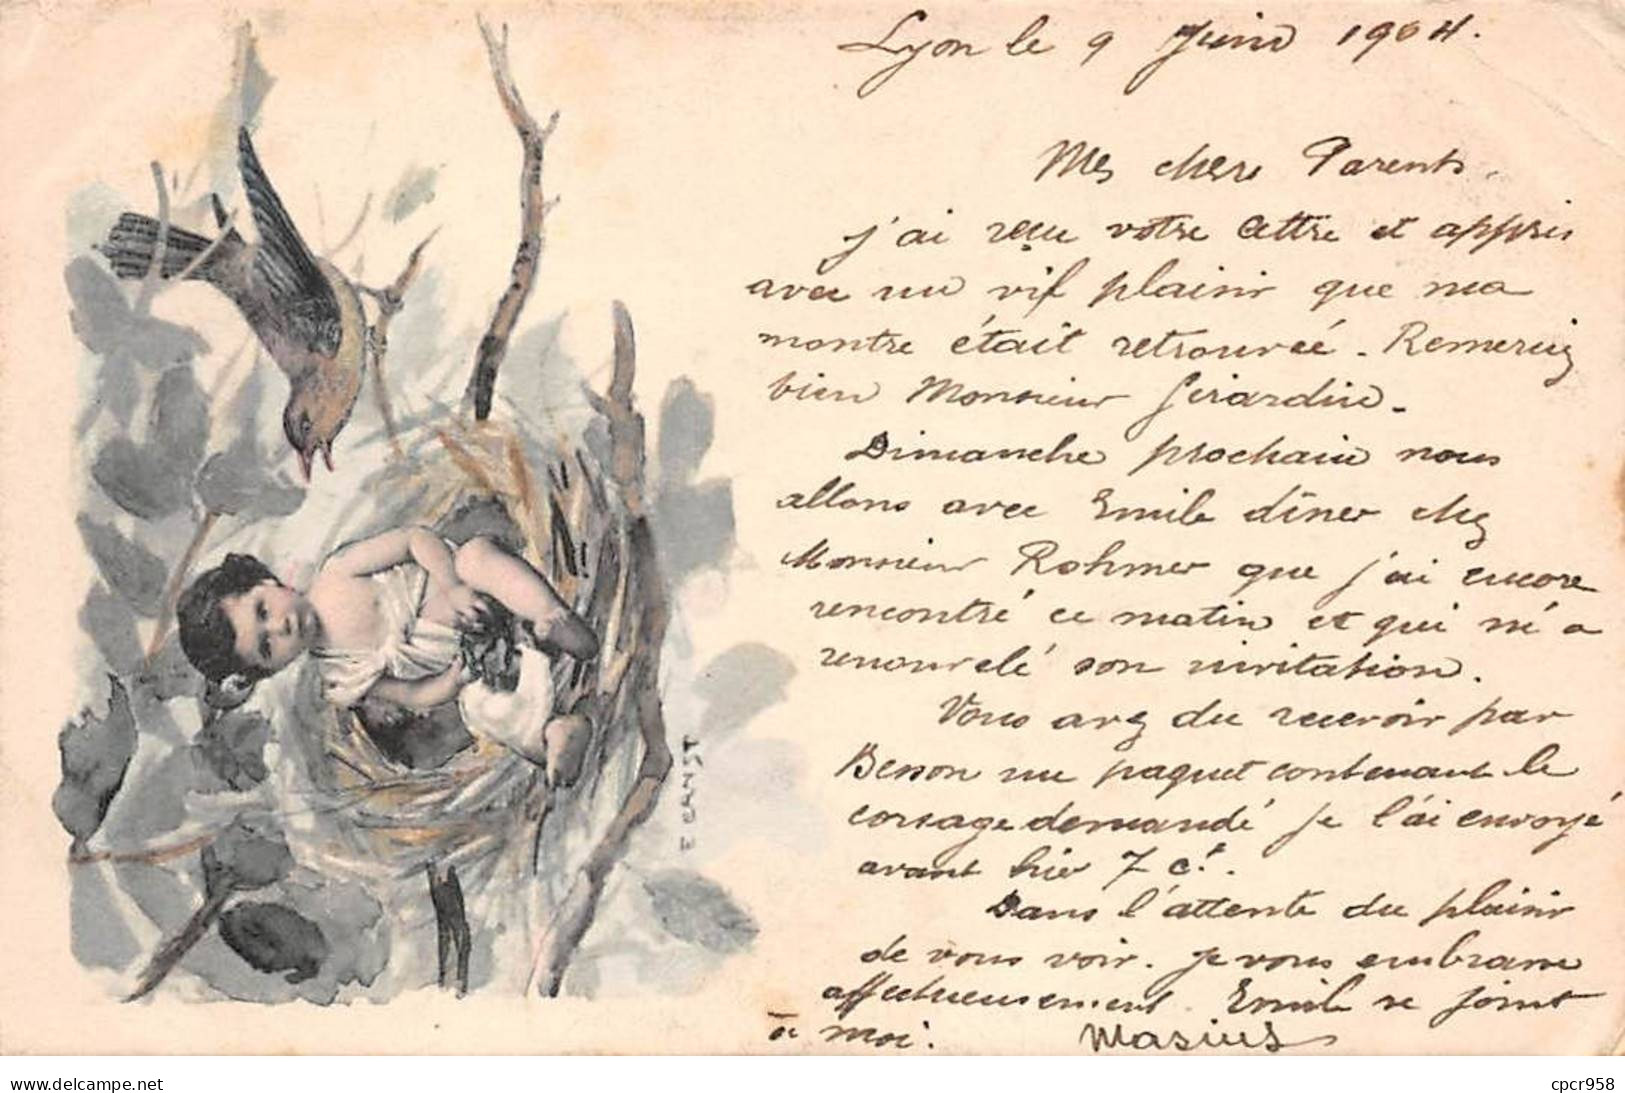 Lyon le 9 Juin 1904.
Mes chers Parents.
j'ai reçu votre lettre et appris
avec un vif plaisir que ma
montre était retrouvée. Remerciez
bien Monsieur Girardin.
Dimanche prochain nous
allons avec Emile dîner chez
Monsieur Rohmer que j'ai encore
rencontré ce matin et qui m'a
renouvelé son invitation.
Vous avez du recevoir par
Besson un paquet contenant le
corsage demandé je l'ai envoyé
avant hier 7 ct.
Dans l'attente du plaisir
de vous voir. je vous embrasse
affectueusement. Emile se joint
à moi. Masius
E CERNST
www.delcampe.net
cpcr958